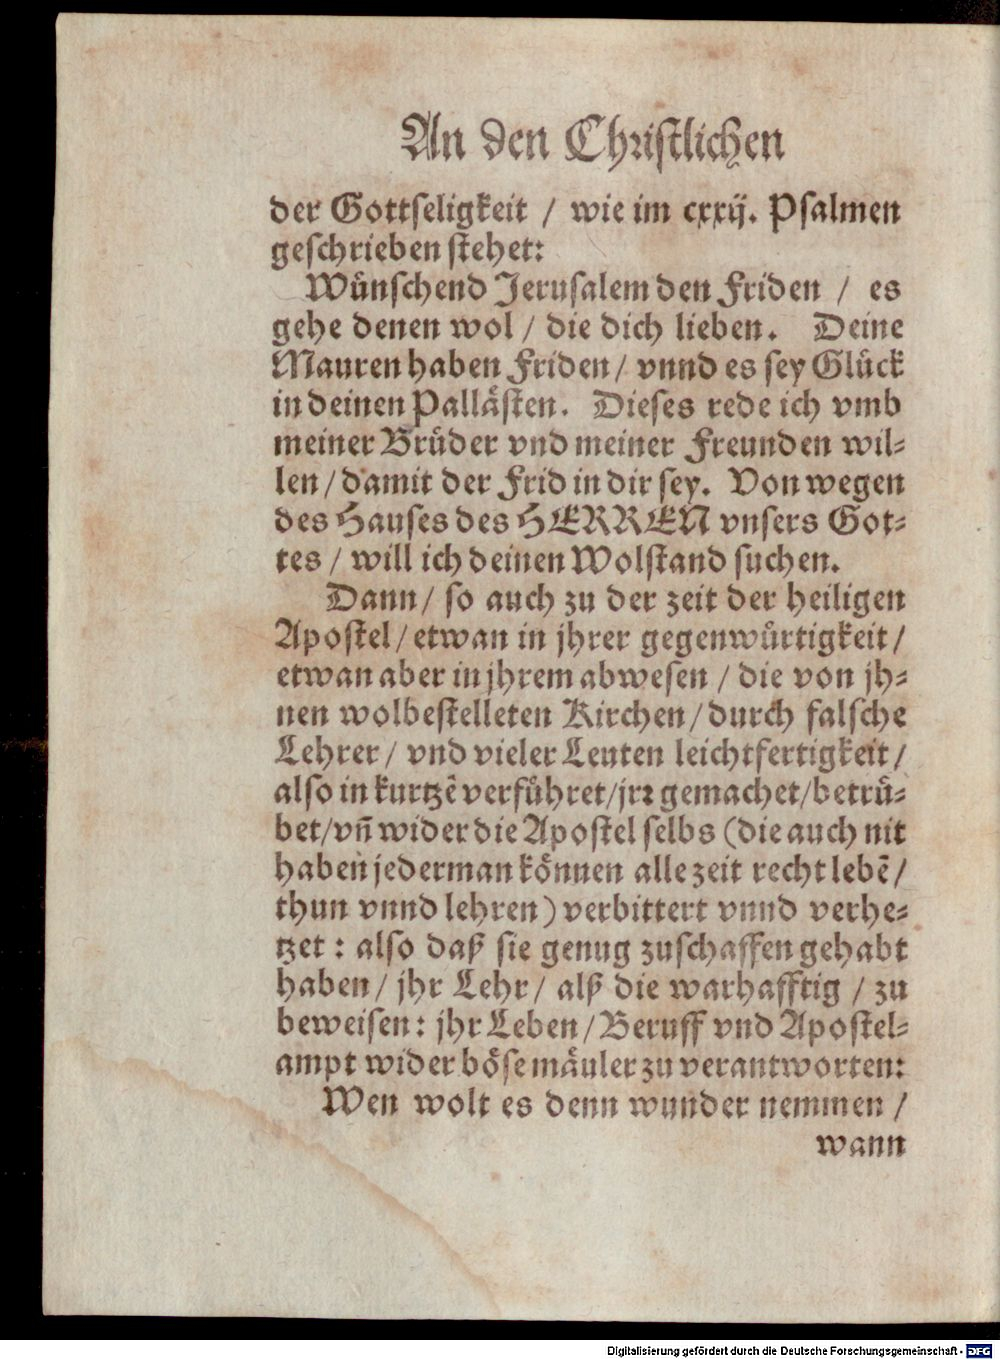 An den Christlichen
der Gottseligkeit / wie im cxxij. Psalmen
geschrieben stehet:
Wünschend Jerusalem den Friden / es
gehe denen wol / die dich lieben. Deine
Mauren haben Friden / vnnd es sey Glück
in deinen Pallästen. Dieses rede ich vmb
meiner Brüder vnd meiner Freunden wil-
len / damit der Frid in dir sey. Von wegen
des Hauses des HERREN vnsers Got-
tes / will ich deinen Wolstand suchen.
Dann / so auch zu der zeit der heiligen
Apostel / etwan in jhrer gegenwürtigkeit /
etwan aber in jhrem abwesen / die von jh-
nen wolbestelleten Kirchen / durch falsche
Lehrer / vnd vieler Leuten leichtfertigkeit /
also in kurtzē verführet / jrr gemachet / betrü-
bet / vn̄ wider die Apostel selbs (die auch nit
haben jederman können alle zeit recht lebē /
thun vnnd lehren) verbittert vnnd verhe-
tzet : also daß sie genug zuschaffen gehabt
haben / jhr Lehr / alß die warhafftig / zu
beweisen : jhr Leben / Beruff vnd Apostel-
ampt wider böse mäuler zu verantworten:
Wen wolt es denn wunder nemmen /
wann
Digitalisierung gefördert durch die Deutsche Forschungsgemeinschaft - DFG